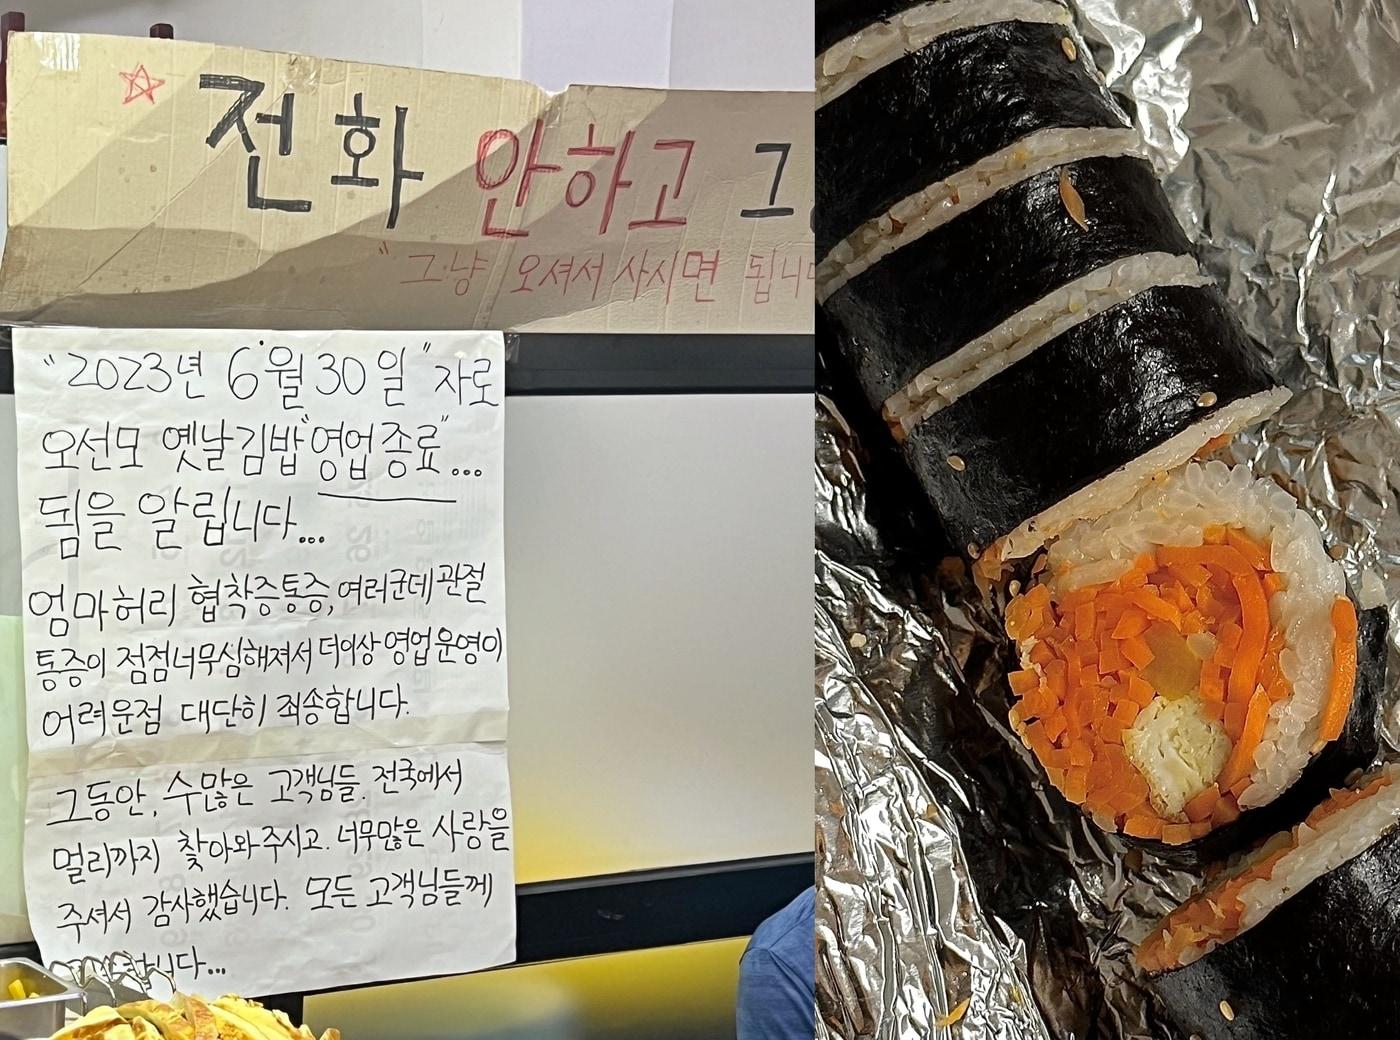 전화 안하고
"그냥 오셔서 사시면 됩니다
"2023년 6월 30일"자로
오선모 옛날김밥"영업종료"...
됨을 알립니다...
엄마허리 협착증통증, 여러군데 관절
통증이 점점너무심해져서 더이상 영업운영이
어려운점 대단히 죄송합니다.
그동안, 수많은 고객님들. 전국에서
멀리까지 찾아와주시고. 너무많은 사랑을
주셔서 감사했습니다. 모든 고객님들께